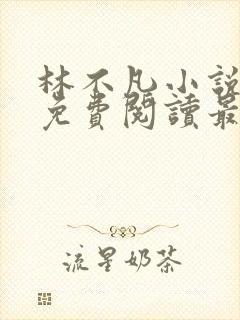 林不凡小說
免費閱讀最
流星奶茶